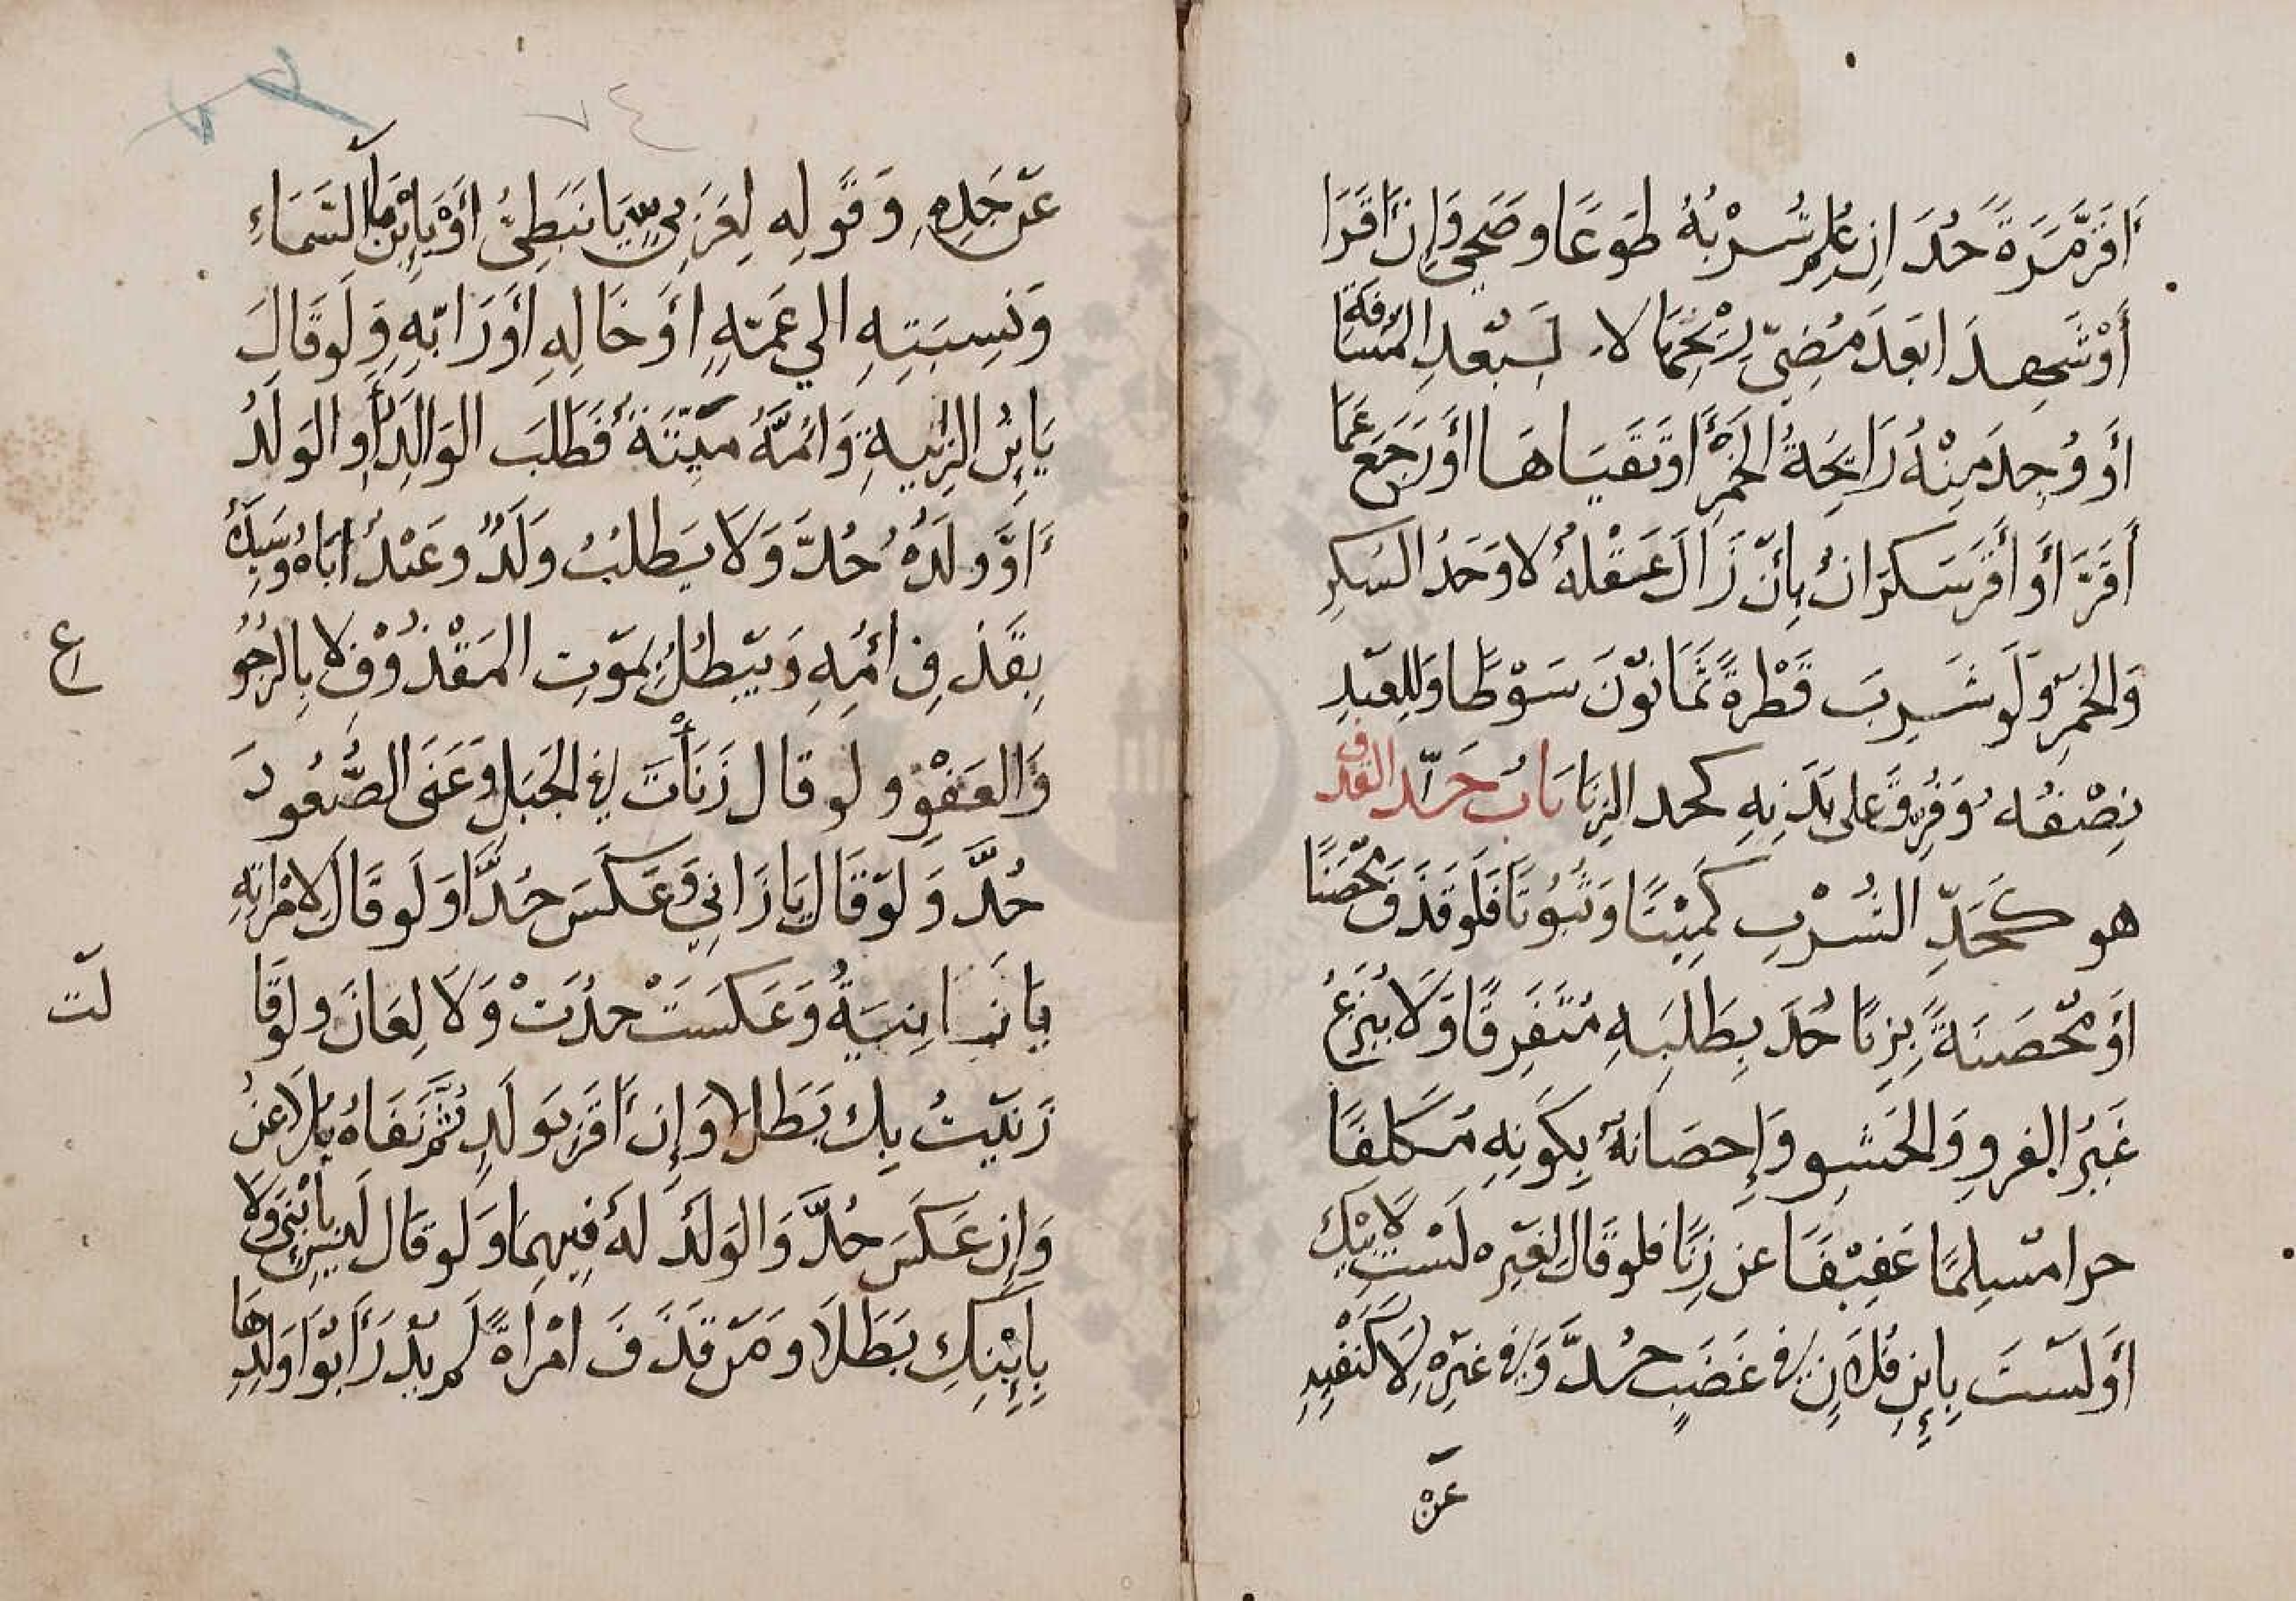 أَقَرَّ مَرَةً حُدَ إِن عُلِمَ شُرْبُهُ طَوعًا وصَحَى وَإِن أَقَرَا
أَوْ شَهِدَا بَعدَ مُضِيّ رِيْحِهَا لا لِبُعدِ المَسَافَة
أَو وُجِدَ مِنْهُ رَايِحَةُ الخَمرِ أَو تَقَيَاهَا أَو رَجَعَ عَمَا
أَقَرَّ أَو أَقَرَ سَكرَانُ بِأَنْ زَالَ عَقْلهُ لا وَحَدُ السُكرِ
وَالخَمرِ وَلَو شَرِبَ قَطْرةً ثَمَانُوْنَ سَوْطًا وَلِلعَبْدِ
نِصْفُه وَفُرِقَ على بَدَنِهِ كحد الزِنَا بَابُ حَدّ القذف
هو كَحَدِّ الشُرْبِ كَمِيْتًا وَثُبُوتًا فَلَو قَذَفَ مُحْصَنًا
أَوْ مُحْصَنَةً بِزِنًا حُدَ بِطَلَبِهِ مُتَفَرِقًا وَلَا يُنْزَعُ
غَيْرُ الفروِ وَالحَشِو وَإِحصَانهُ بِكَونِهِ مُكَلفًا
حرا مُسْلِمًا عَفِيْفًا عن زِنًا فلو قَال لِغَيْرِه لَسْتَ لِابِيْكَ
أَو لَسْتَ بِإِبنِ فُلَانٍ في غَضَبٍ حُدَّ وَفي غَيْرِهِ لَا كَنَفْيِهِ
عَنْ
٧٤
عَنْ جَدِهِ وَقَوْلِه لِعَرَبِيٍّ يَا نَبَطِيُّ أَوْ يَا إِبْنَ مَآ السَّمَاءِ
وَنِسبَتِهِ الي عَمّهِ أَوْ خَالِهِ أَوْ رَابّهِ وَلَو قَالَ
يَا بنَ الزنيةِ وَأُمّهُ مَيّتَةٌ فَطَلَبَ الوَالِدُ أَوِ الوَلَدُ
أَوْ وَلَدُهُ حُدَّ وَلَا يَطلُبُ وَلَدٌ وعَبْدٌ أَبَاهُ وَسَيِدَهُ
بِقَذفِ أُمِهِ وَيَبْطُلُ بِمَوْتِ المَقْذُوْفِ لا بِالرُجُوُ
ع
وَالعَفْوِ ولو قال زَنَأْتَ في الجَبَلِ وَعَنَى الصُّعُودَ
حُدَّ وَلَوْ قَالَ يَا زَانِي وَعَكَسَ حُدَّا وَلَو قَالَ لِامْرَاتِهِ
يَا زَانِيَةُ وَعَكَسَتْ حُدَتْ وَلَا لِعَانَ ولو قَا
لَت
زَنَيْتُ بِكَ بَطَلا وَإِن أَقَرَّ بوَلَدٍ ثُمَّ نَفَاهُ يُلَاعِنُ
وَإِن عَكَسَ حُدَّ وَالوَلَدُ لَهُ فِيهِمَا وَلَو قَال لَيْسَ بِابْنِى وَلَا
بِإِبْنِكِ بَطَلَا وَمَنْ قَذَفَ امْرَاةً لم يُدْرَ أَبُوْ اوَلَدِهَا